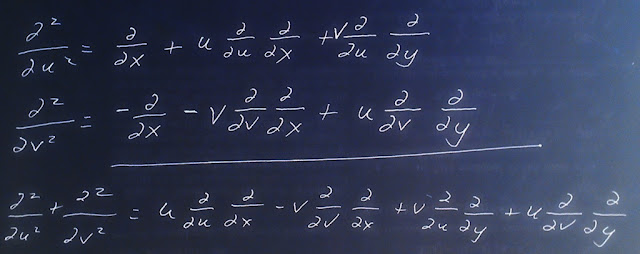 ∂²/∂u² = ∂/∂x + u ∂/∂u ∂/∂x + v ∂/∂u ∂/∂y
∂²/∂v² = -∂/∂x - v ∂/∂v ∂/∂x + u ∂/∂v ∂/∂y
∂²/∂u² + ∂²/∂v² = u ∂/∂u ∂/∂x - v ∂/∂v ∂/∂x + v ∂/∂u ∂/∂y + u ∂/∂v ∂/∂y